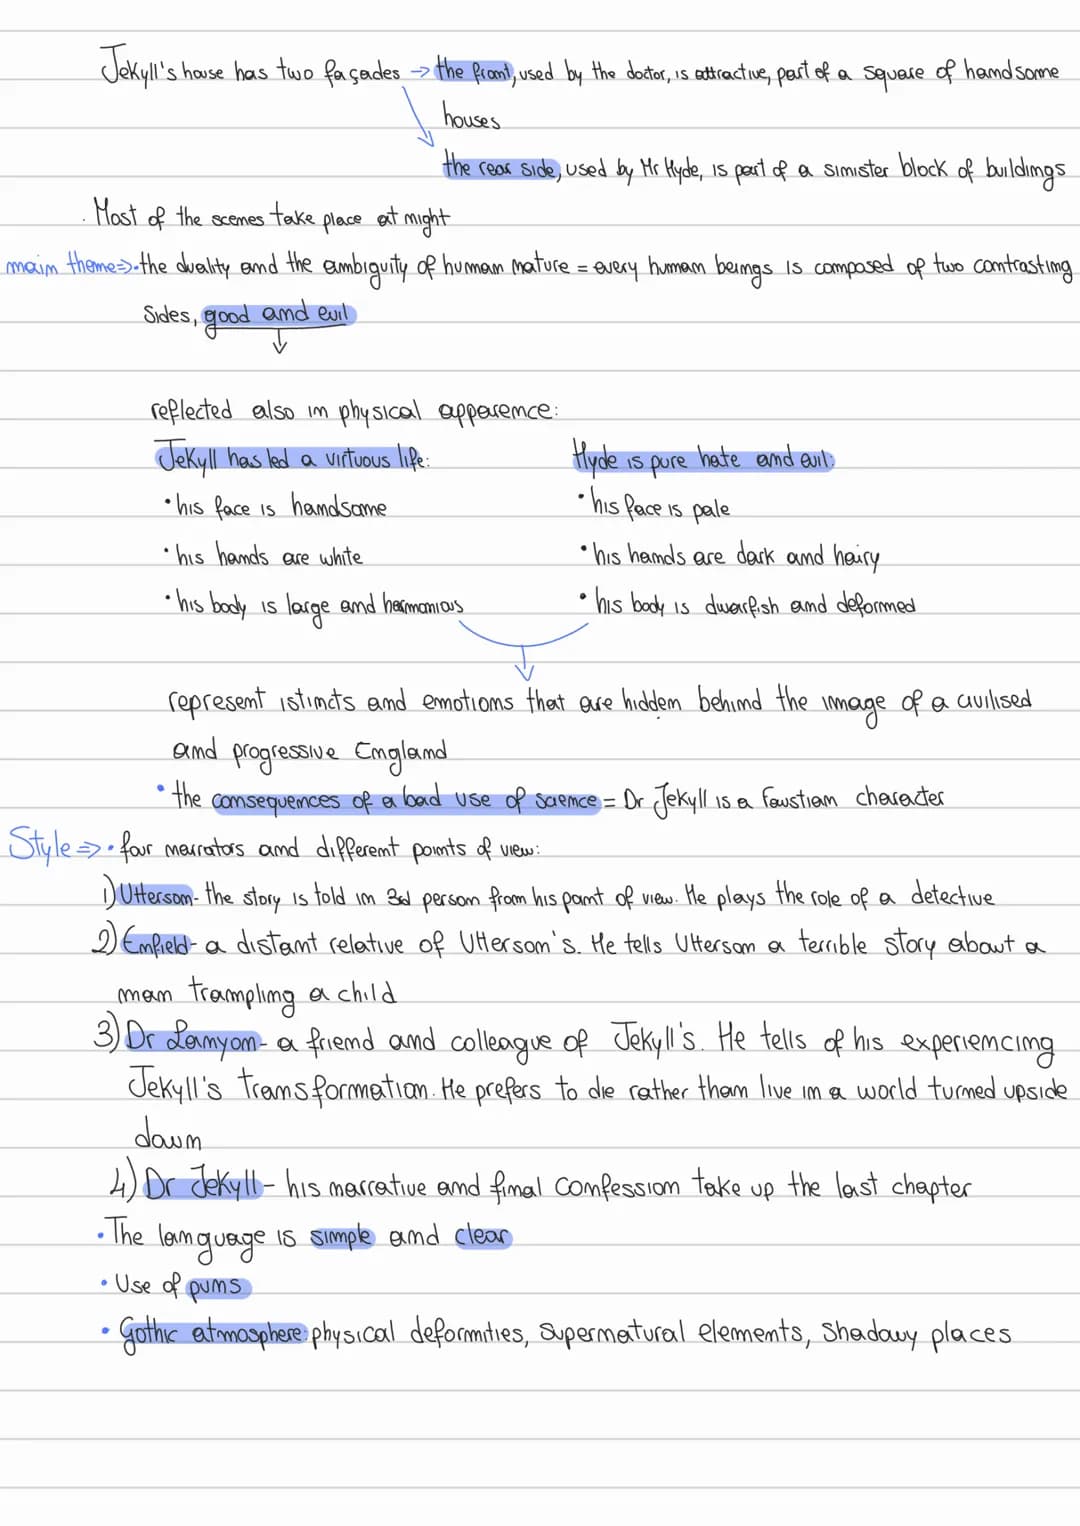 Jekyll's house has two façades → the front, used by the doctor, is attractive, part of a square of handsome
houses
the rear side, used by Mr Hyde, is part of a sinister block of buildings
. Most of the scenes take place at night
main theme⇒•the duality and the ambiguity of human nature = every human beings is composed of two contrasting
sides, good and evil
↓
reflected also in physical apparence:
Jekyll has led a virtuous life: Hyde is pure hate and evil:
•his face is handsome •his face is pale
•his hands are white •his hands are dark and hairy
•his body is large and harmonious •his body is dwarfish and deformed
represent istincts and emotions that are hidden behind the image of a civilised
and progressive England
•the consequences of a bad use of science = Dr Jekyll is a Faustian character
Style ⇒ • four narrators and different points of view:
1) Utterson- the story is told in 3rd person from his point of view. He plays the role of a detective
2) Enfield- a distant relative of Utterson's. He tells Utterson a terrible story about a
man trampling a child
3) Dr Lanyon- a friend and colleague of Jekyll's. He tells of his experiencing
Jekyll's transformation. He prefers to die rather than live in a world turned upside
down
4) Dr Jekyll- his narrative and final confession take up the last chapter
•The language is simple and clear
•Use of puns
•Gothic atmosphere: physical deformities, supernatural elements, shadowy places